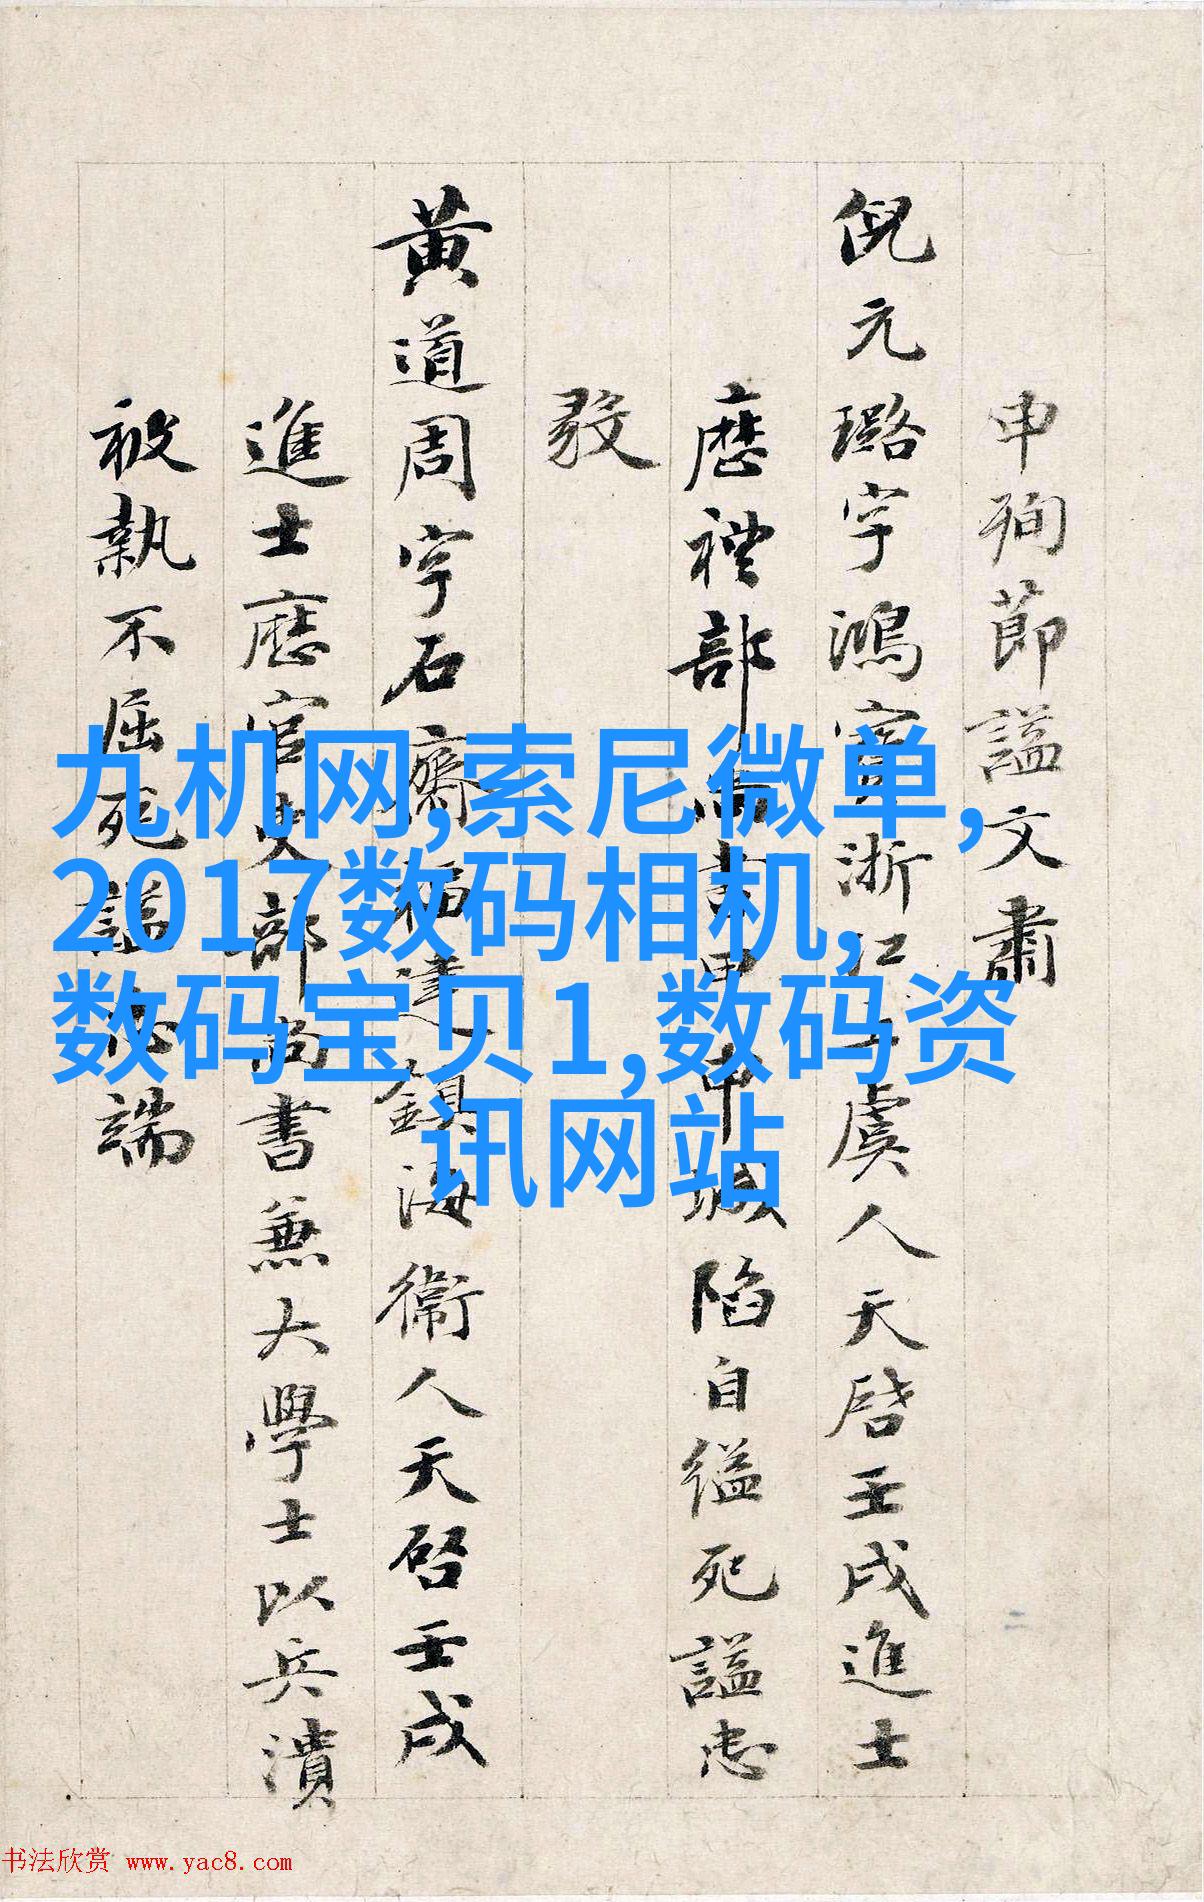 申殉節謚文肅
倪元璐字鴻寶浙江上虞人天啓壬戌進士
厯禮部尚書甲申城陷自縊死謚忠
黄道周字石齋福建鎮海衞人天啓壬戌
進士厯官吏部尚書兼大學士以兵潰
被執不屈死謚忠端
九机网,索尼微单,
2017数码相机,
数码宝贝1,数码资
讯网站
书法欣赏 www.yac8.com